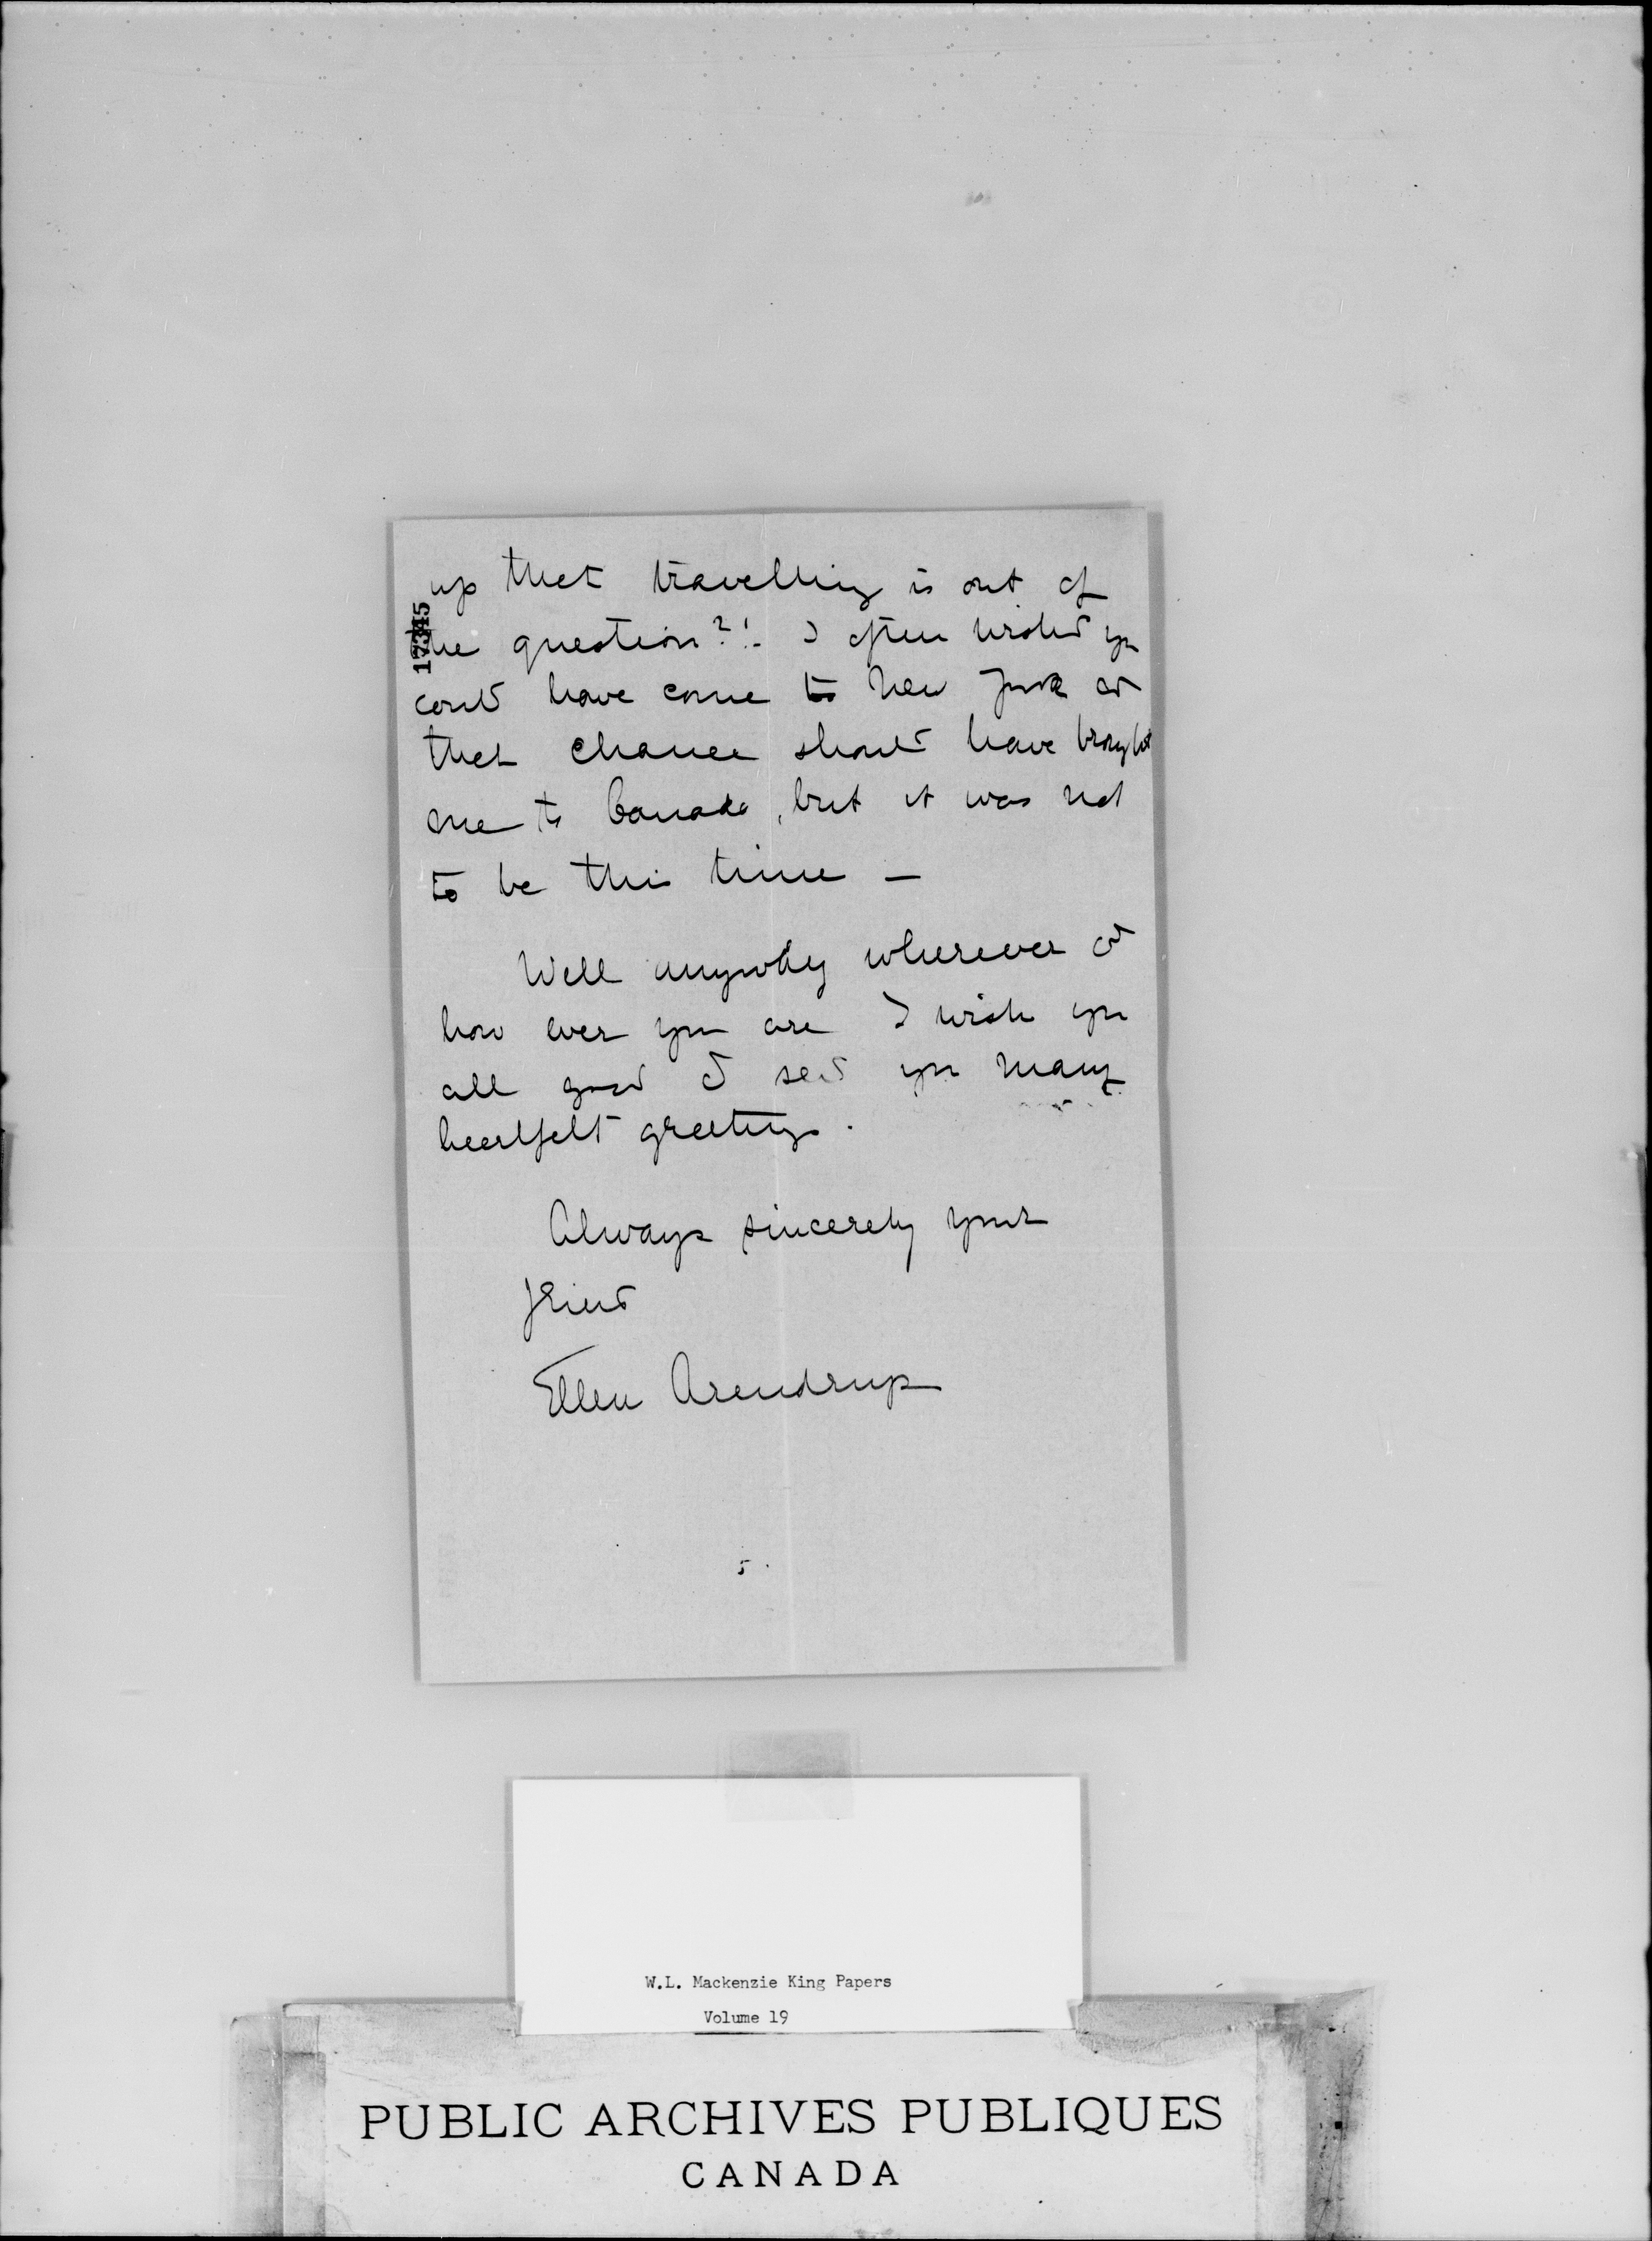 up that travelling is out of
17345
the question?! - I often wished you
could have come to New York or
that chance should have brought
me to Canada, but it was not
to be this time —
Well anyway wherever or
how ever you are I wish you
all good & send you many
heartfelt greetings.
Always sincerely your
friend
Ellen Arendrup
W.L. Mackenzie King Papers
Volume 19
PUBLIC ARCHIVES PUBLIQUES
CANADA